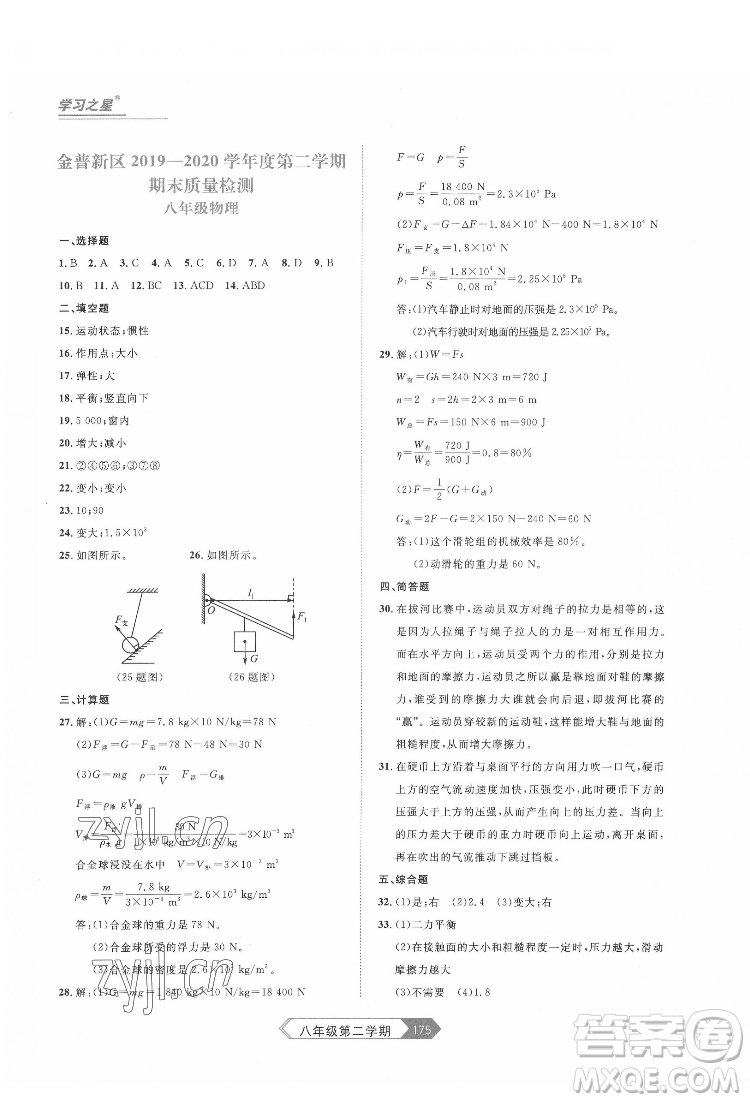 学习之星®
金普新区 2019—2020 学年度第二学期
期末质量检测
八年级物理
一、选择题
1. B 2. A 3. C 4. B 5. C 6. D 7. A 8. D 9. B
10. B 11. A 12. BC 13. ACD 14. ABD
二、填空题
15. 运动状态;惯性
16. 作用点;大小
17. 弹性;大
18. 形变;竖直向下
19. 5 000;窗内
20. 增大;减小
21. ②④⑤⑥;①③⑦⑧
22. 变小;变小
23. 10;90
24. 变大;1.5×10³
25. 如图所示。 26. 如图所示。
F支
l₁
F₁
G
(25 题图) (26 题图)
三、计算题
27. 解:(1)G=mg=7.8 kg×10 N/kg=78 N
(2)F浮=G-F示=78 N-48 N=30 N
(3)G=mg ρ=m/V
F浮=ρ水 gV排
V排=F浮/ρ水g= =3×10⁻³ m³
合金球浸没在水中 V=V排=3×10⁻³ m³
ρ球=m/V=7.8 kg/3×10⁻³ m³=2.6×10³ kg/m³
答:(1)合金球的重力是 78 N。
(2)合金球所受的浮力是 30 N。
(3)合金球的密度是 2.6×10³ kg/m³。
28. 解:(1)G=mg=1 840 kg×10 N/kg=18 400 N
F=G p=F/S
p=F/S=18 400 N/0.08 m²=2.3×10⁵ Pa
(2)F支=G-ΔF=1.84×10⁴ N-400 N=1.8×10⁴ N
F压=F支=1.8×10⁴ N
p₁=F压/S=1.8×10⁴ N/0.08 m²=2.25×10⁵ Pa
答:(1)汽车静止时对地面的压强是 2.3×10⁵ Pa。
(2)汽车行驶时对地面的压强是 2.25×10⁵ Pa。
29. 解:(1)W=Fs
W有=Gh=240 N×3 m=720 J
n=2 s=2h=2×3 m=6 m
W总=Fs=150 N×6 m=900 J
η=W有/W总=720 J/900 J=0.8=80%
(2)F=1/2(G+G动)
G动=2F-G=2×150 N-240 N=60 N
答:(1)这个滑轮组的机械效率是 80%。
(2)动滑轮的重力是 60 N。
四、简答题
30. 在拔河比赛中，运动员双方对绳子的拉力是相等的，这是因为人拉绳子与绳子拉人的力是一对相互作用力。
而在水平方向上，运动员受两个力的作用，分别是拉力和地面的摩擦力，运动员之所以赢是靠地面的摩擦力，谁受到的摩擦力大谁就不动，即拔河比赛的
“赢”。运动员穿较新的运动鞋，这样能增大鞋与地面的
粗糙程度，从而增大摩擦力。
31. 在硬币上方沿着与桌面平行的方向用力吹一口气，硬币上方的空气流动速度加快，压强变小，硬币下方的压强大于上方的压强，从而产生向上的压力差。当向上
的压力差大于硬币的重力时硬币可实现，离开桌面，再在吹出的气流推动下跳过挡板。
五、综合题
32. (1)是;右 (2)2.4 (3)变大;右
33. (1)二力平衡
(2)在接触面的大小和粗糙程度一定时，压力越大，滑动
摩擦力越大
(3)不需要 (4)1.8
八年级第二学期 175
zyjl.cn
zyjl.cn
答案圈
MXQE.COM